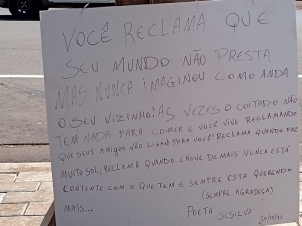 VOCÊ RECLAMA QUE
SEU MUNDO NÃO PRESTA
MAS NUNCA IMAGINOU COMO ANDA
O SEU VIZINHO! AS VEZES O COITADO NÃO
TEM NADA PARA COMER E VOCÊ VIVE RECLAMANDO
QUE SEUS AMIGOS NÃO LIGAM PARA VOCÊ! RECLAMA QUANDO FAZ
MUITO SOL, RECLAMA QUANDO CHOVE DEMAIS NUNCA ESTÁ
CONTENTE COM O QUE TEM E SEMPRE ESTA QUERENDO
MAIS... (SEMPRE AGRADEÇA)
POETA